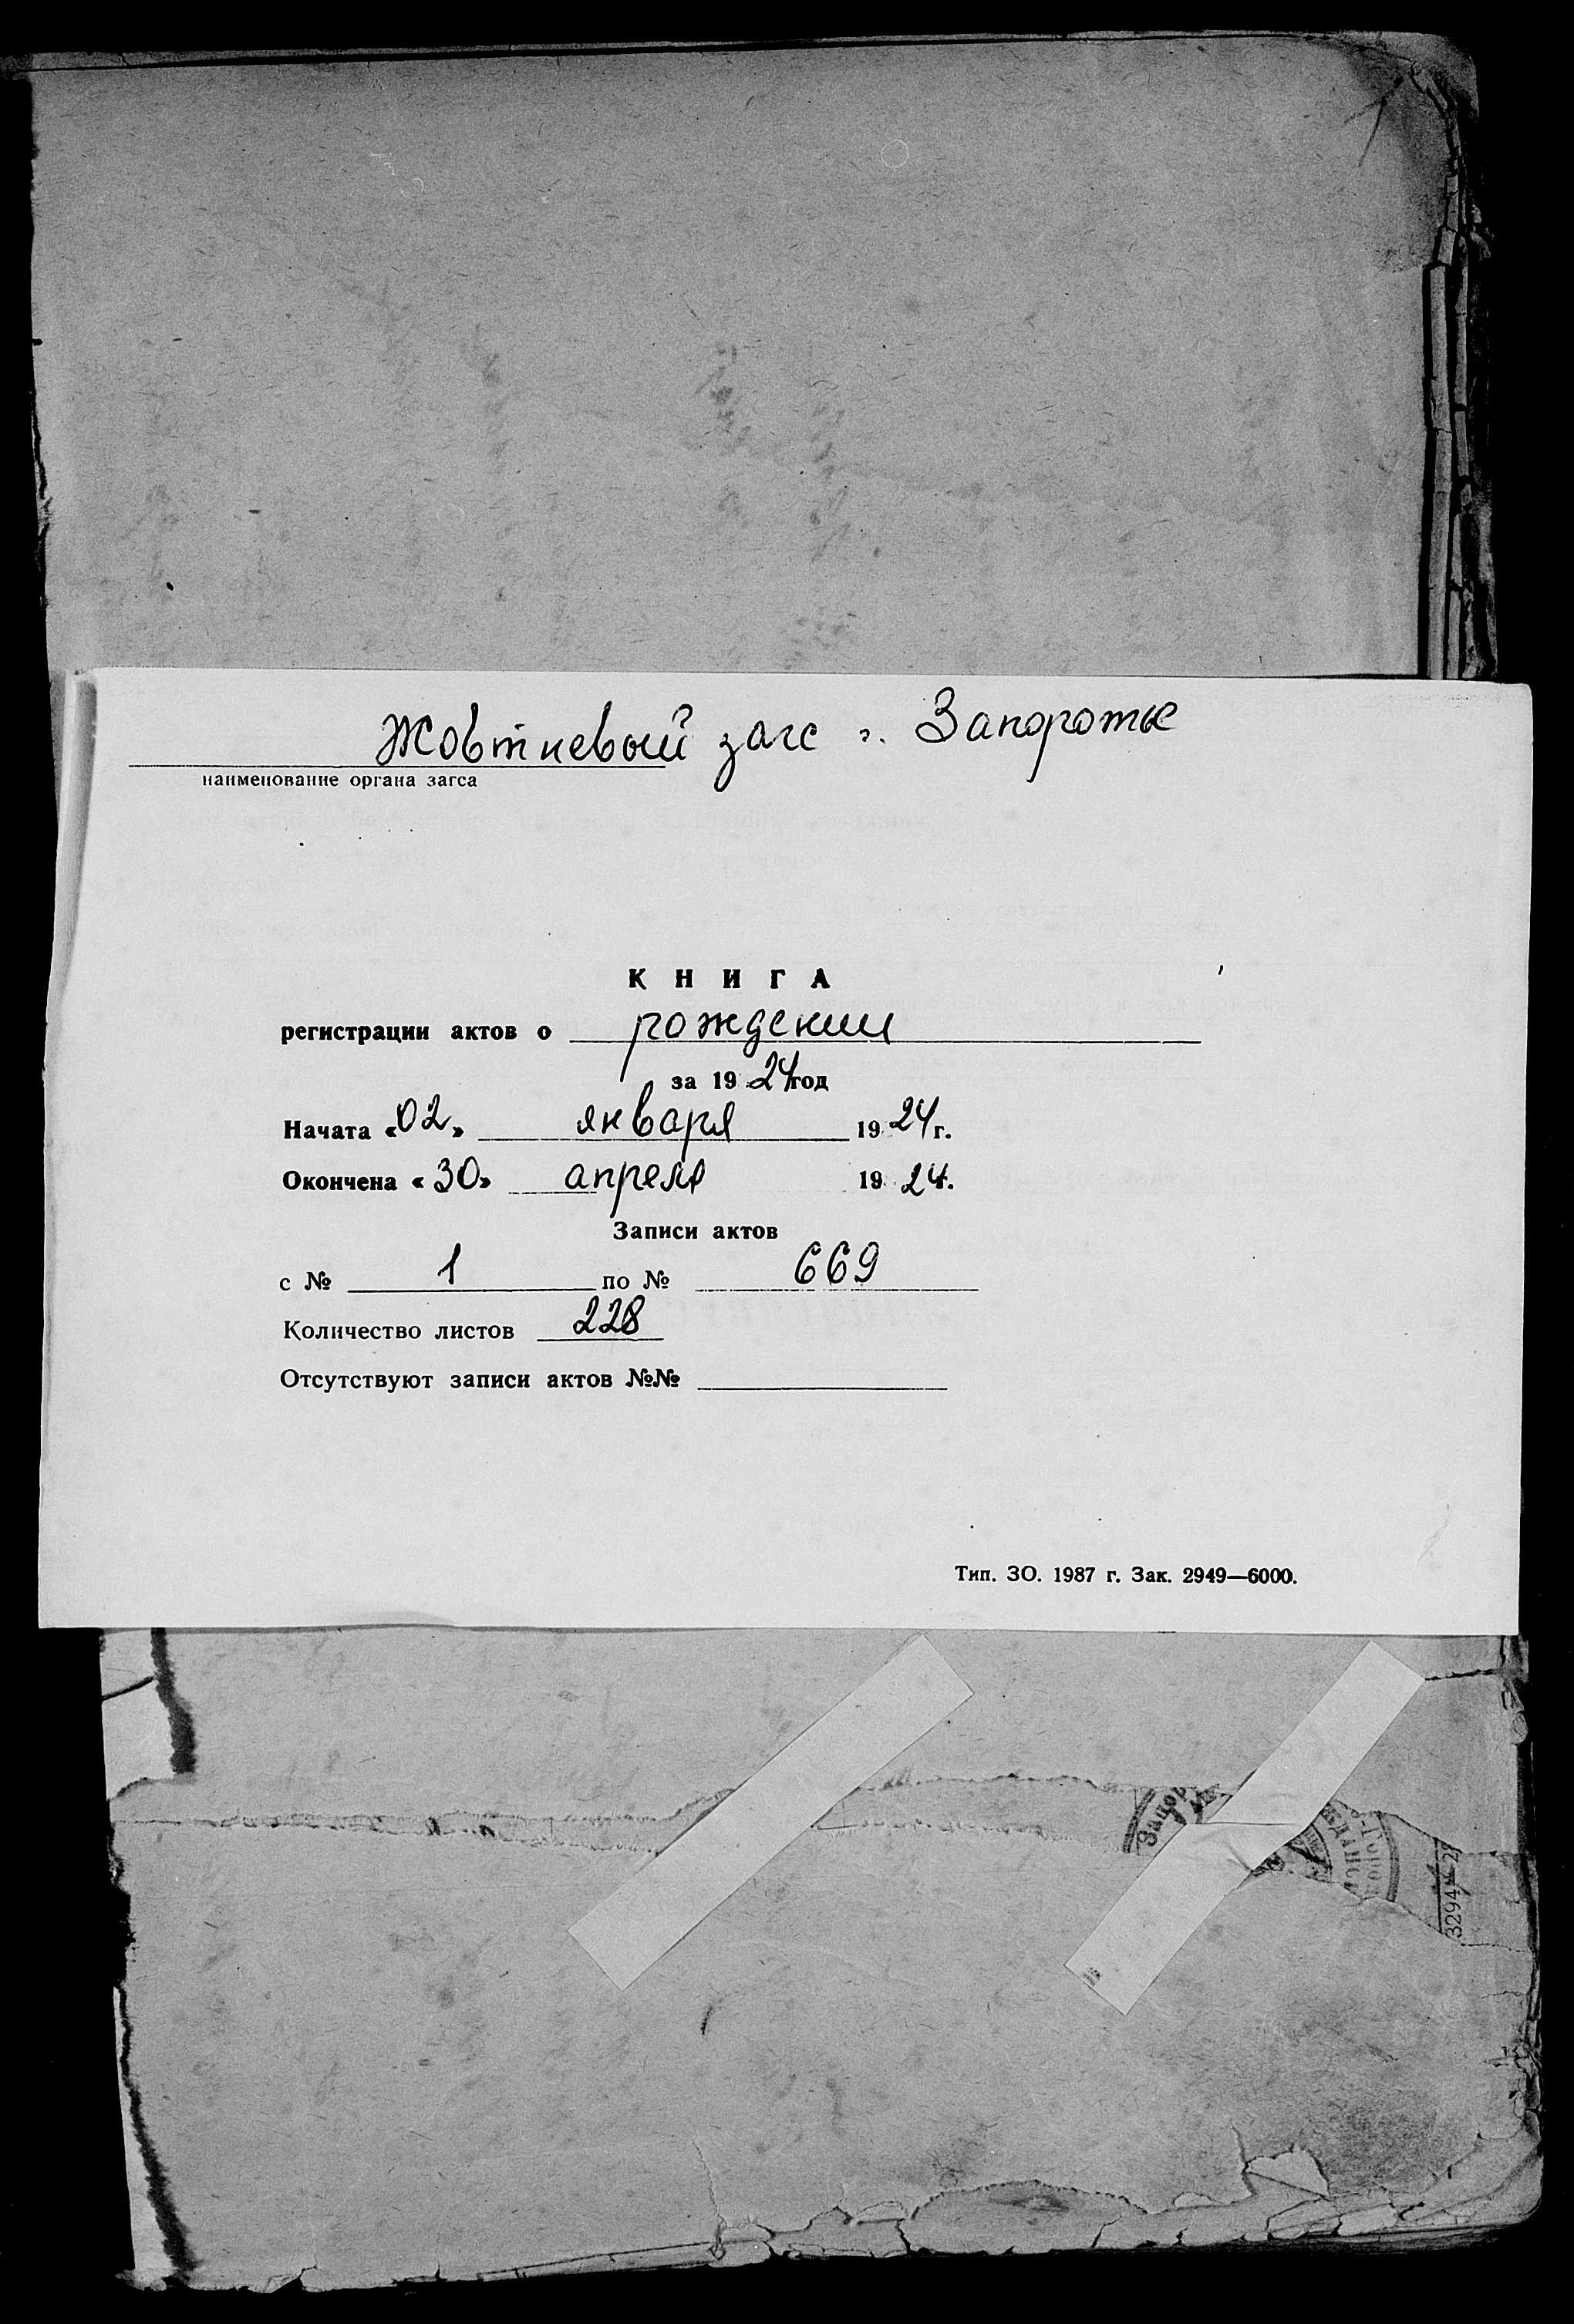 Жовтневый загс г. Запорожье
наименование органа загса
КНИГА
регистрации актов о рождении
за 1924 год
Начата «02» января 1924 г.
Окончена «30» апреля 1924.
Записи актов
с № 1 по № 669
Количество листов 228
Отсутствуют записи актов №№
Тип. ЗО. 1987 г. Зак. 2949—6000.